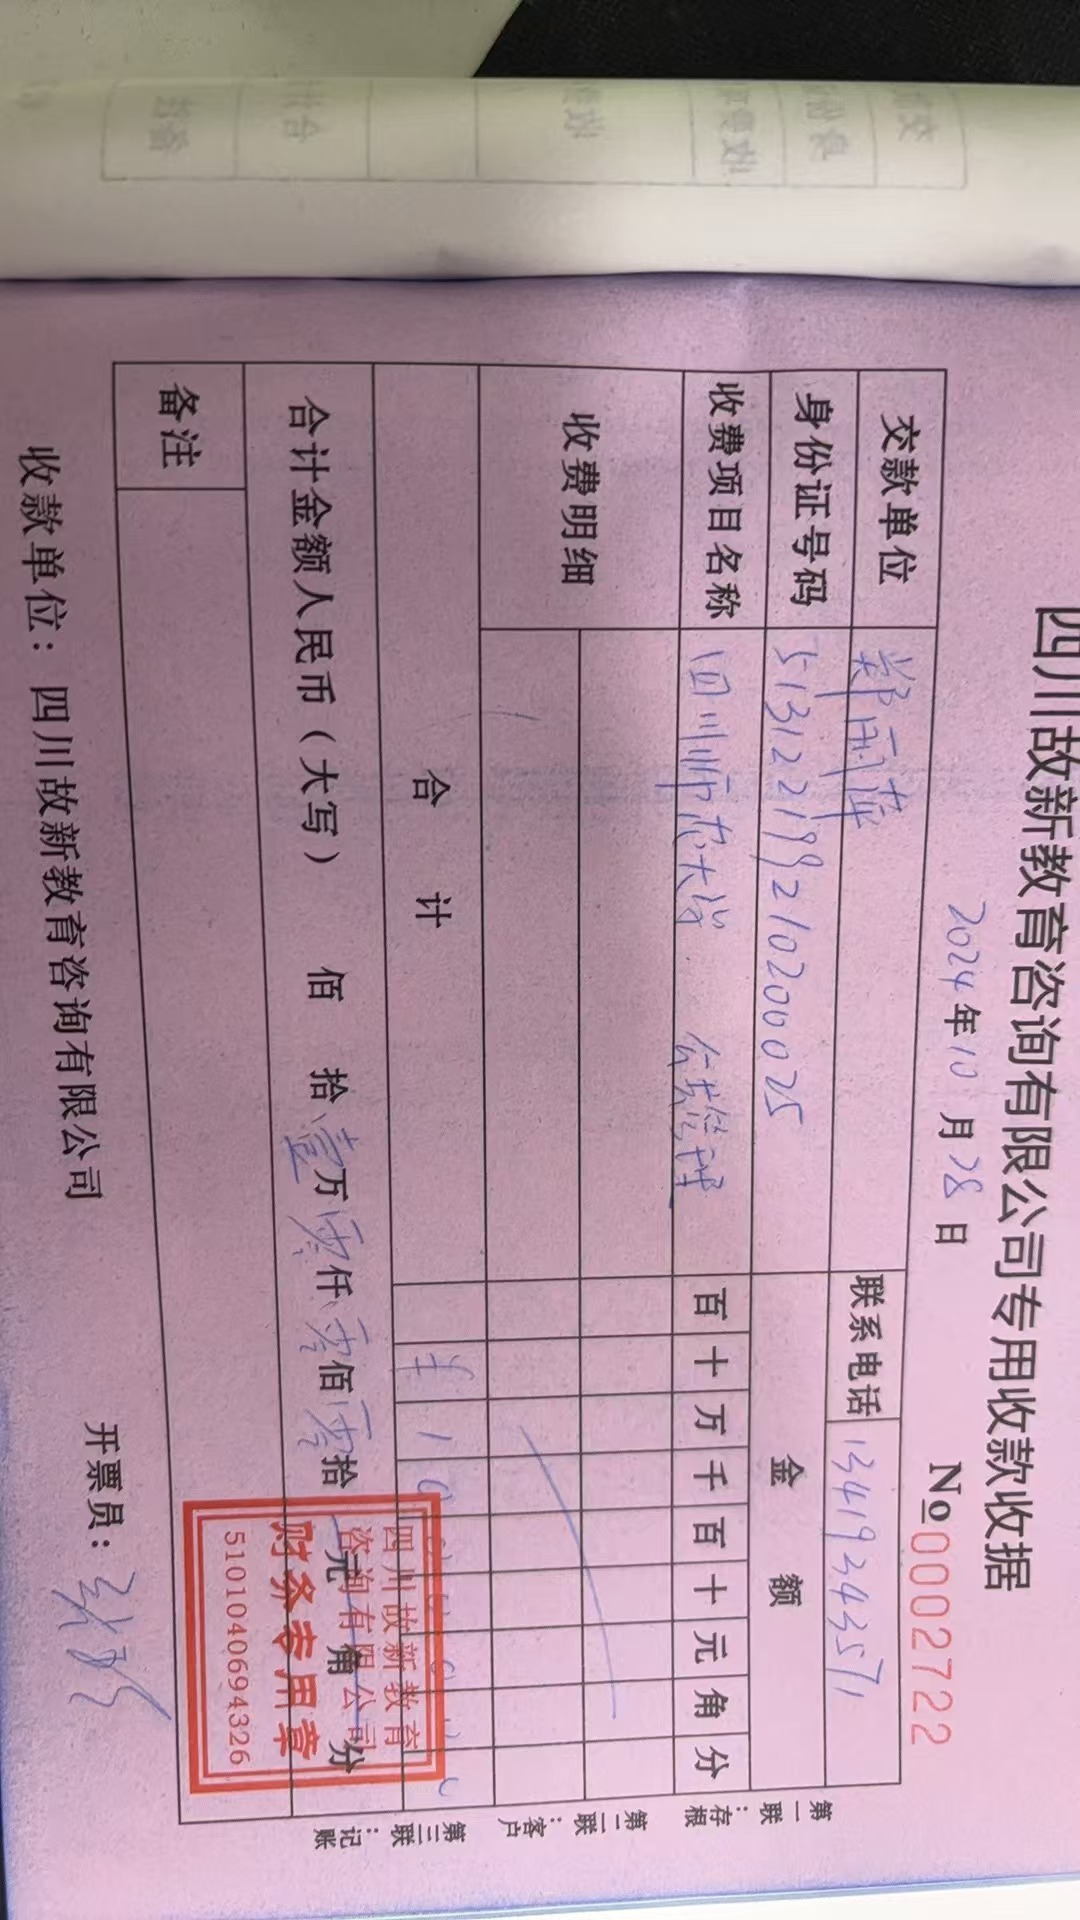 四川故新教育咨询有限公司专用收款收据
2024年10月28日 No 0002722
交款单位 郑雨萍 联系电话 13419343571
身份证号码 513122199210200025 金额
收费项目名称 四川师范大学 公共管理 百 十 万 千 百 十 元 角 分
收费明细
合计 ¥ 1 0 0 0 0 0 0
合计金额人民币（大写） 佰 拾 壹万 零仟 零佰 零拾 元 角 分
备注
四川故新教育
咨询有限公司
财务专用章
5101040694326
收款单位：四川故新教育咨询有限公司 开票员：
第一联：存根 第二联：客户 第三联：记账